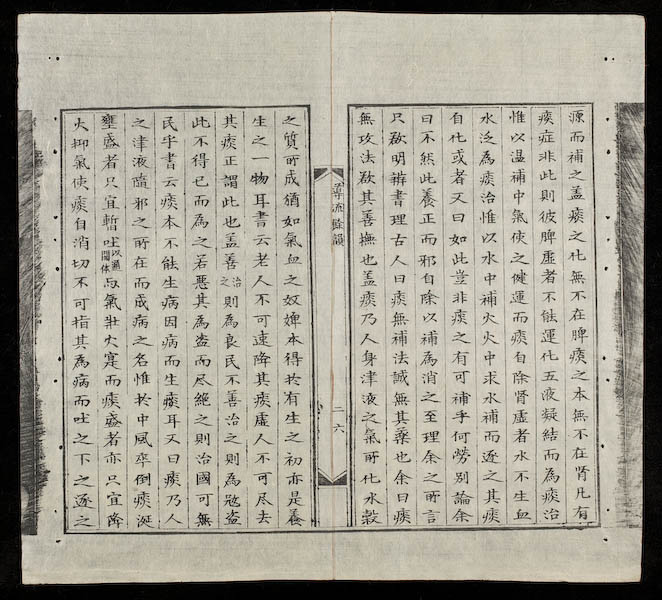 源而補之盖痰之化無不在脾痰之本無不在肾凡有
痰症非此則彼脾虚者不能運化五液凝結而為痰治
惟以温補中氣使之健運而痰自除肾虚者水不生血
水泛為痰治惟以水中補火火中求水補而逐之其痰
自化或者又曰如此豈非痰之有可補乎何勞別論余
曰不然此養正而邪自除以補為消之至理余之所言
只欲明辨書理古人曰痰無補法誠無其藥也余曰痰
無攻法欲其善撫也盖痰乃人身津液之氣所化水穀
導流餘韻
二六
之質所成猶如氣血之奴婢本得於有生之初亦是養
生之一物耳書云老人不可速降其痰虚人不可尽去
其痰正謂此也盖善治之則為良民不善治之則為冦盗
此不得已而為之若悪其為盗而尽絕之則治國可無
民乎書云痰本不能生病因病而生痰耳又曰痰乃人
之津液隨邪之所在而成病之名惟於中風卒倒痰涎
壅盛者只宜暫吐以通關体與氣壯火寔而痰盛者亦只宜降
火抑氣使痰自消切不可指其為病而吐之下之逐之